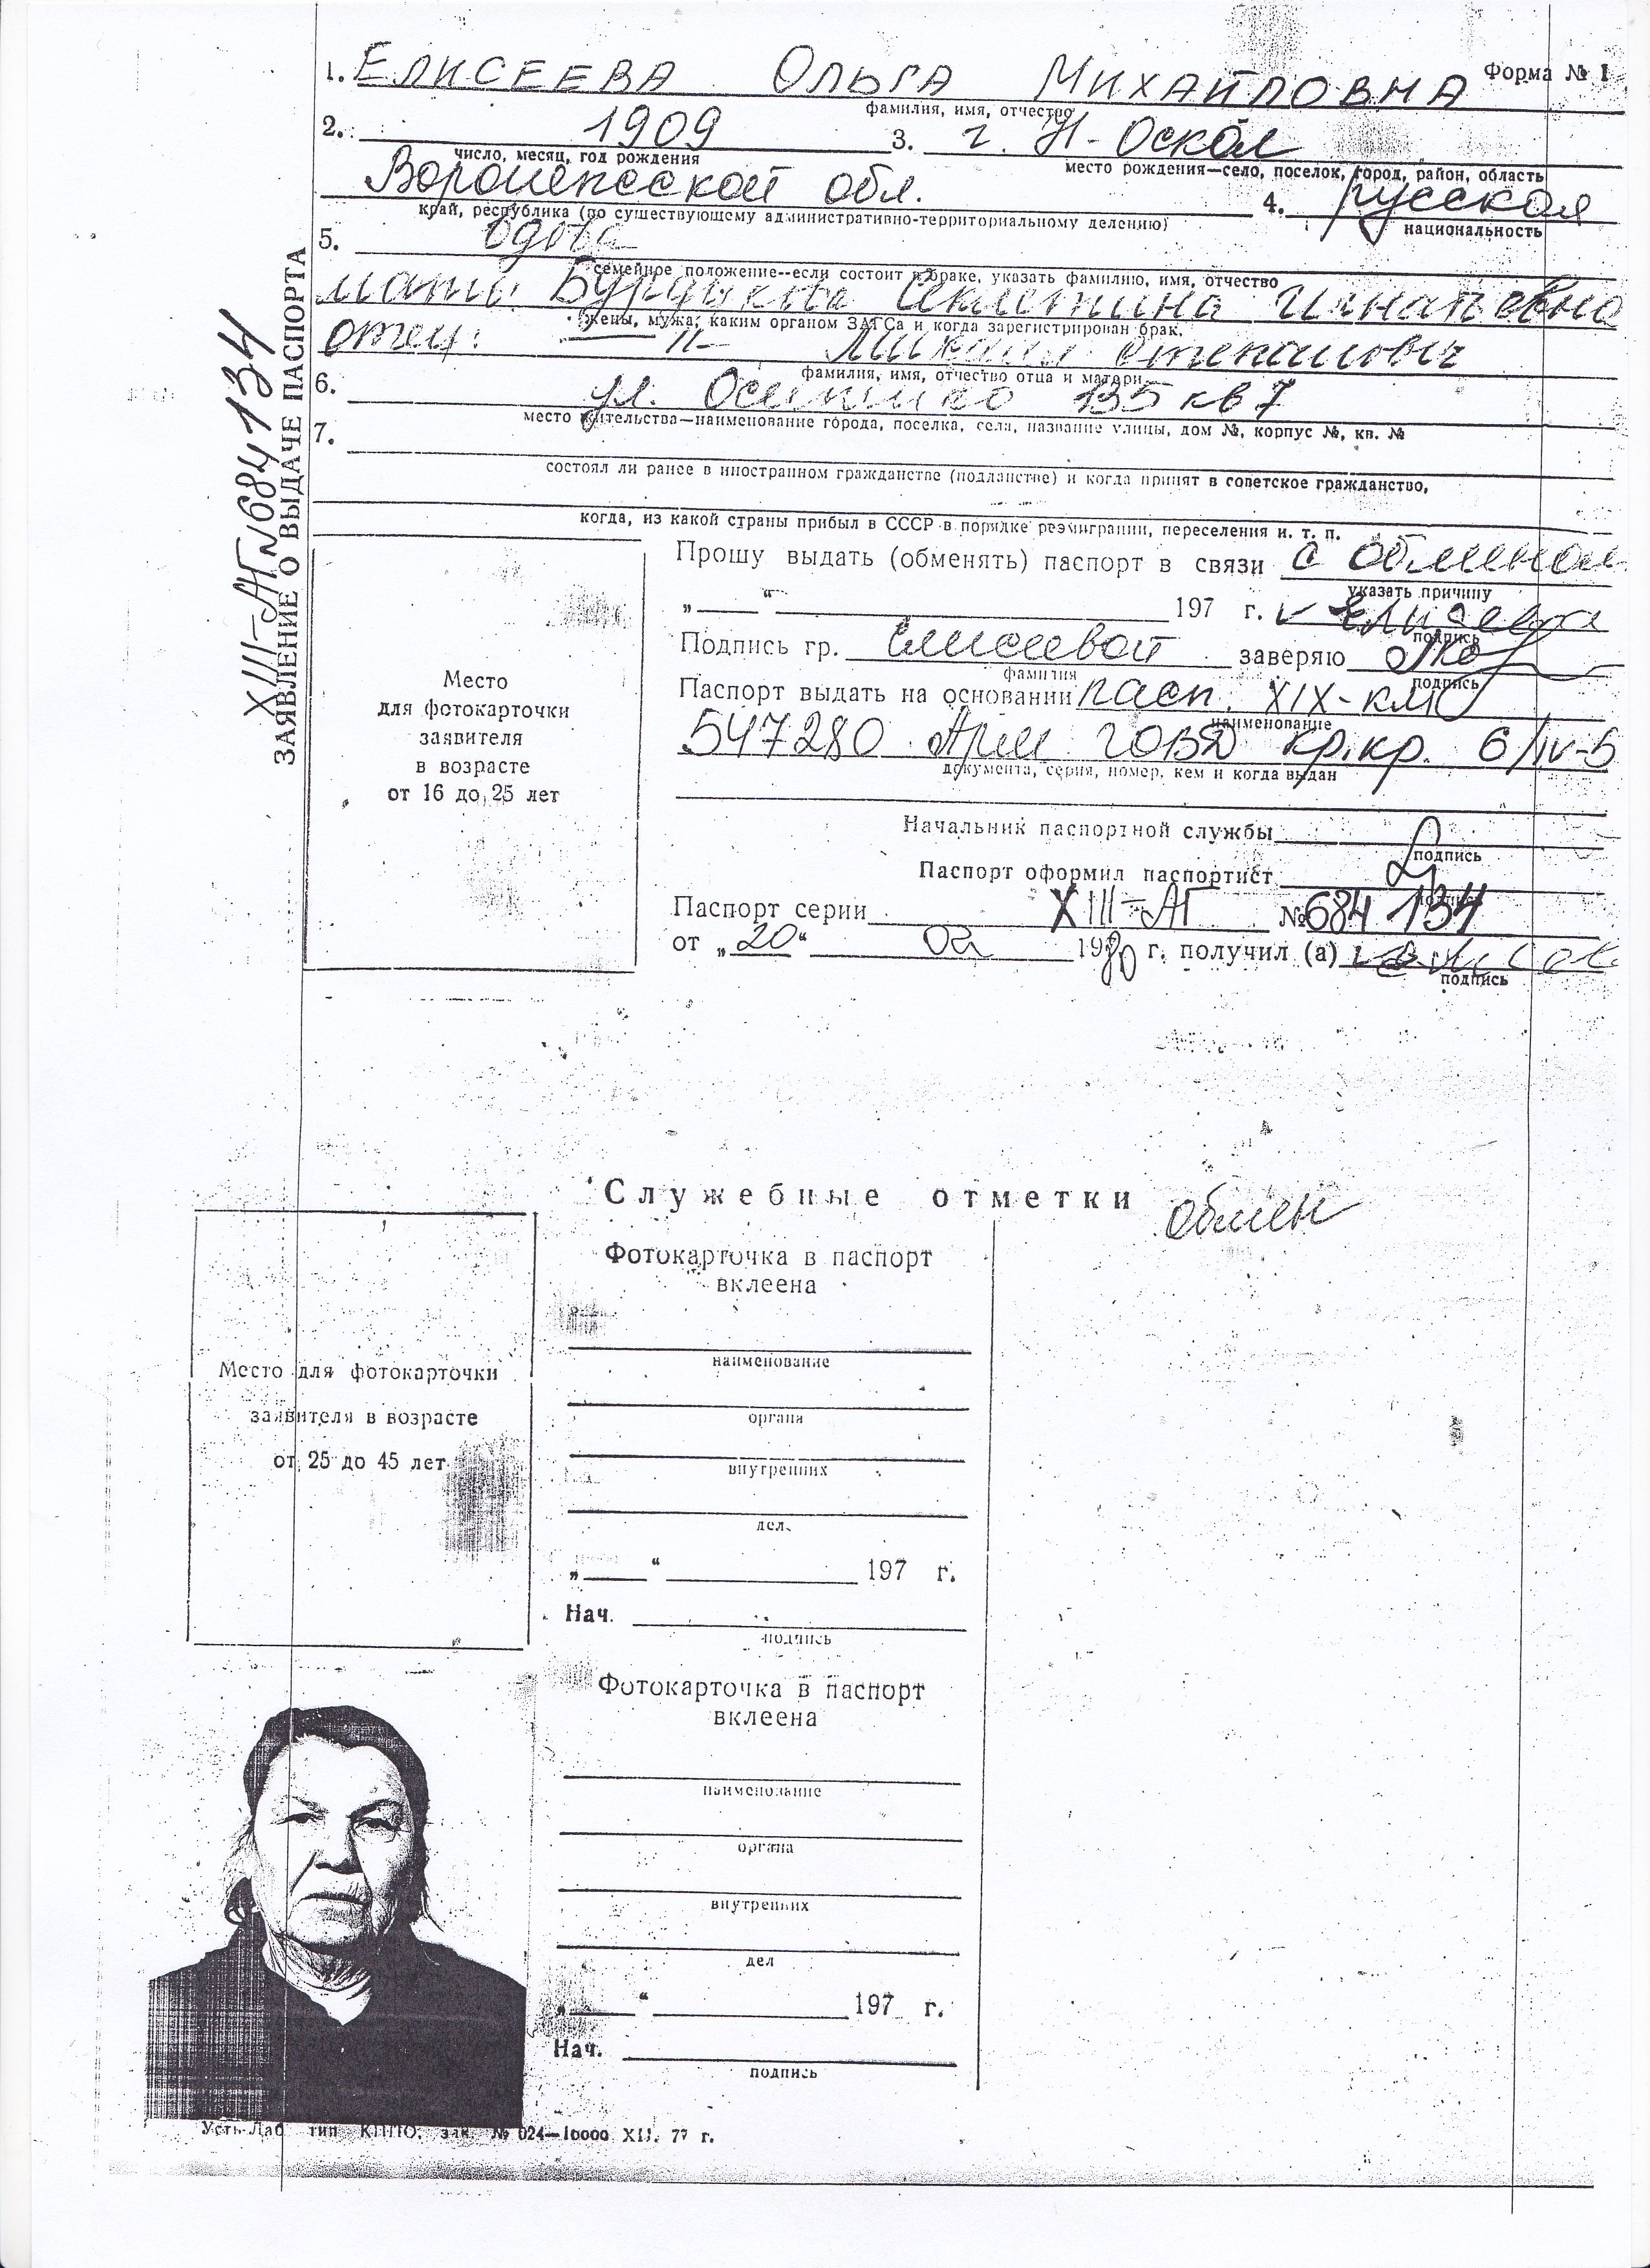 Форма № 1
1. ЕЛИСЕЕВА ОЛЬГА МИХАЙЛОВНА
фамилия, имя, отчество
2. 1909 3. г. Н-Оскол
число, месяц, год рождения место рождения—село, поселок, город, район, область
Воронежской обл. 4. русская
край, республика (по существующему административно-территориальному делению) национальность
5. вдова
семейное положение--если состоит в браке, указать фамилию, имя, отчество
мать: Игнатьевна
жены, мужа; каким органом ЗАГСа и когда зарегистрирован брак.
отец: —"— Михаил Степанович
фамилия, имя, отчество отца и матери
6. ул. Осипенко 135 кв 7
место жительства—наименование города, поселка, села, название улицы, дом №, корпус №, кв. №
7.
состоял ли ранее в иностранном гражданстве (подданстве) и когда принят в советское гражданство,
когда, из какой страны прибыл в СССР в порядке реэмиграции, переселения и. т. п.
XIII-АГ №684134
ЗАЯВЛЕНИЕ О ВЫДАЧЕ ПАСПОРТА
Место
для фотокарточки
заявителя
в возрасте
от 16 до 25 лет
Прошу выдать (обменять) паспорт в связи с обменом
указать причину
„ “ 197 г. Елисеева
подпись
Подпись гр. Елисеевой заверяю
фамилия подпись
Паспорт выдать на основании пасп. XIX-КМ
наименование
547280 Арм ГОВД кр.кр. 6/IV-5
документа, серия, номер, кем и когда выдан
Начальник паспортной службы
подпись
Паспорт оформил паспортист
подпись
Паспорт серии XIII-АГ №684134
от „20“ 02 1980 г. получил (а)
подпись
Служебные отметки обмен
Место для фотокарточки
заявителя в возрасте
от 25 до 45 лет
Фотокарточка в паспорт
вклеена
наименование
органа
внутренних
дел.
„ “ 197 г.
Нач.
подпись
Фотокарточка в паспорт
вклеена
наименование
органа
внутренних
дел
„ “ 197 г.
Нач.
подпись
Усть-Лаб тип КППО. зак № 024—10000 XII. 77 г.